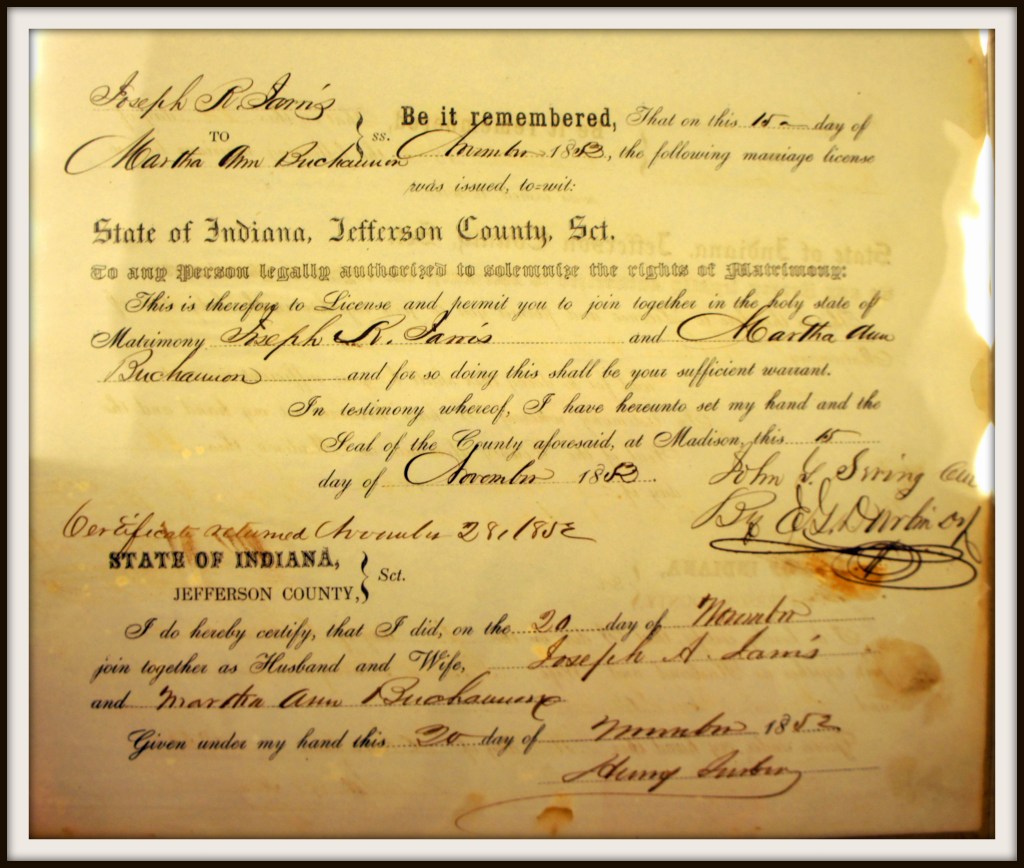 Joseph R. Jarvis
TO
Martha Ann Buchannon
} ss.
Be it remembered, That on this 15 day of
November 1852, the following marriage license
was issued, to=wit:
State of Indiana, Jefferson County, Sct.
To any Person legally authorized to solemnize the rights of Matrimony:
This is therefore to License and permit you to join together in the holy state of
Matrimony Joseph R. Jarvis and Martha Ann
Buchannon and for so doing this shall be your sufficient warrant.
In testimony whereof, I have hereunto set my hand and the
Seal of the County aforesaid, at Madison, this 15
day of November 1852
John
By E.
Certificate returned November 28, 1852
STATE OF INDIANA,
JEFFERSON COUNTY, } Sct.
I do hereby certify, that I did, on the 20 day of November
join together as Husband and Wife, Joseph A. Jarvis
and Martha Ann Buchannon
Given under my hand this 20 day of November 1852
Henry